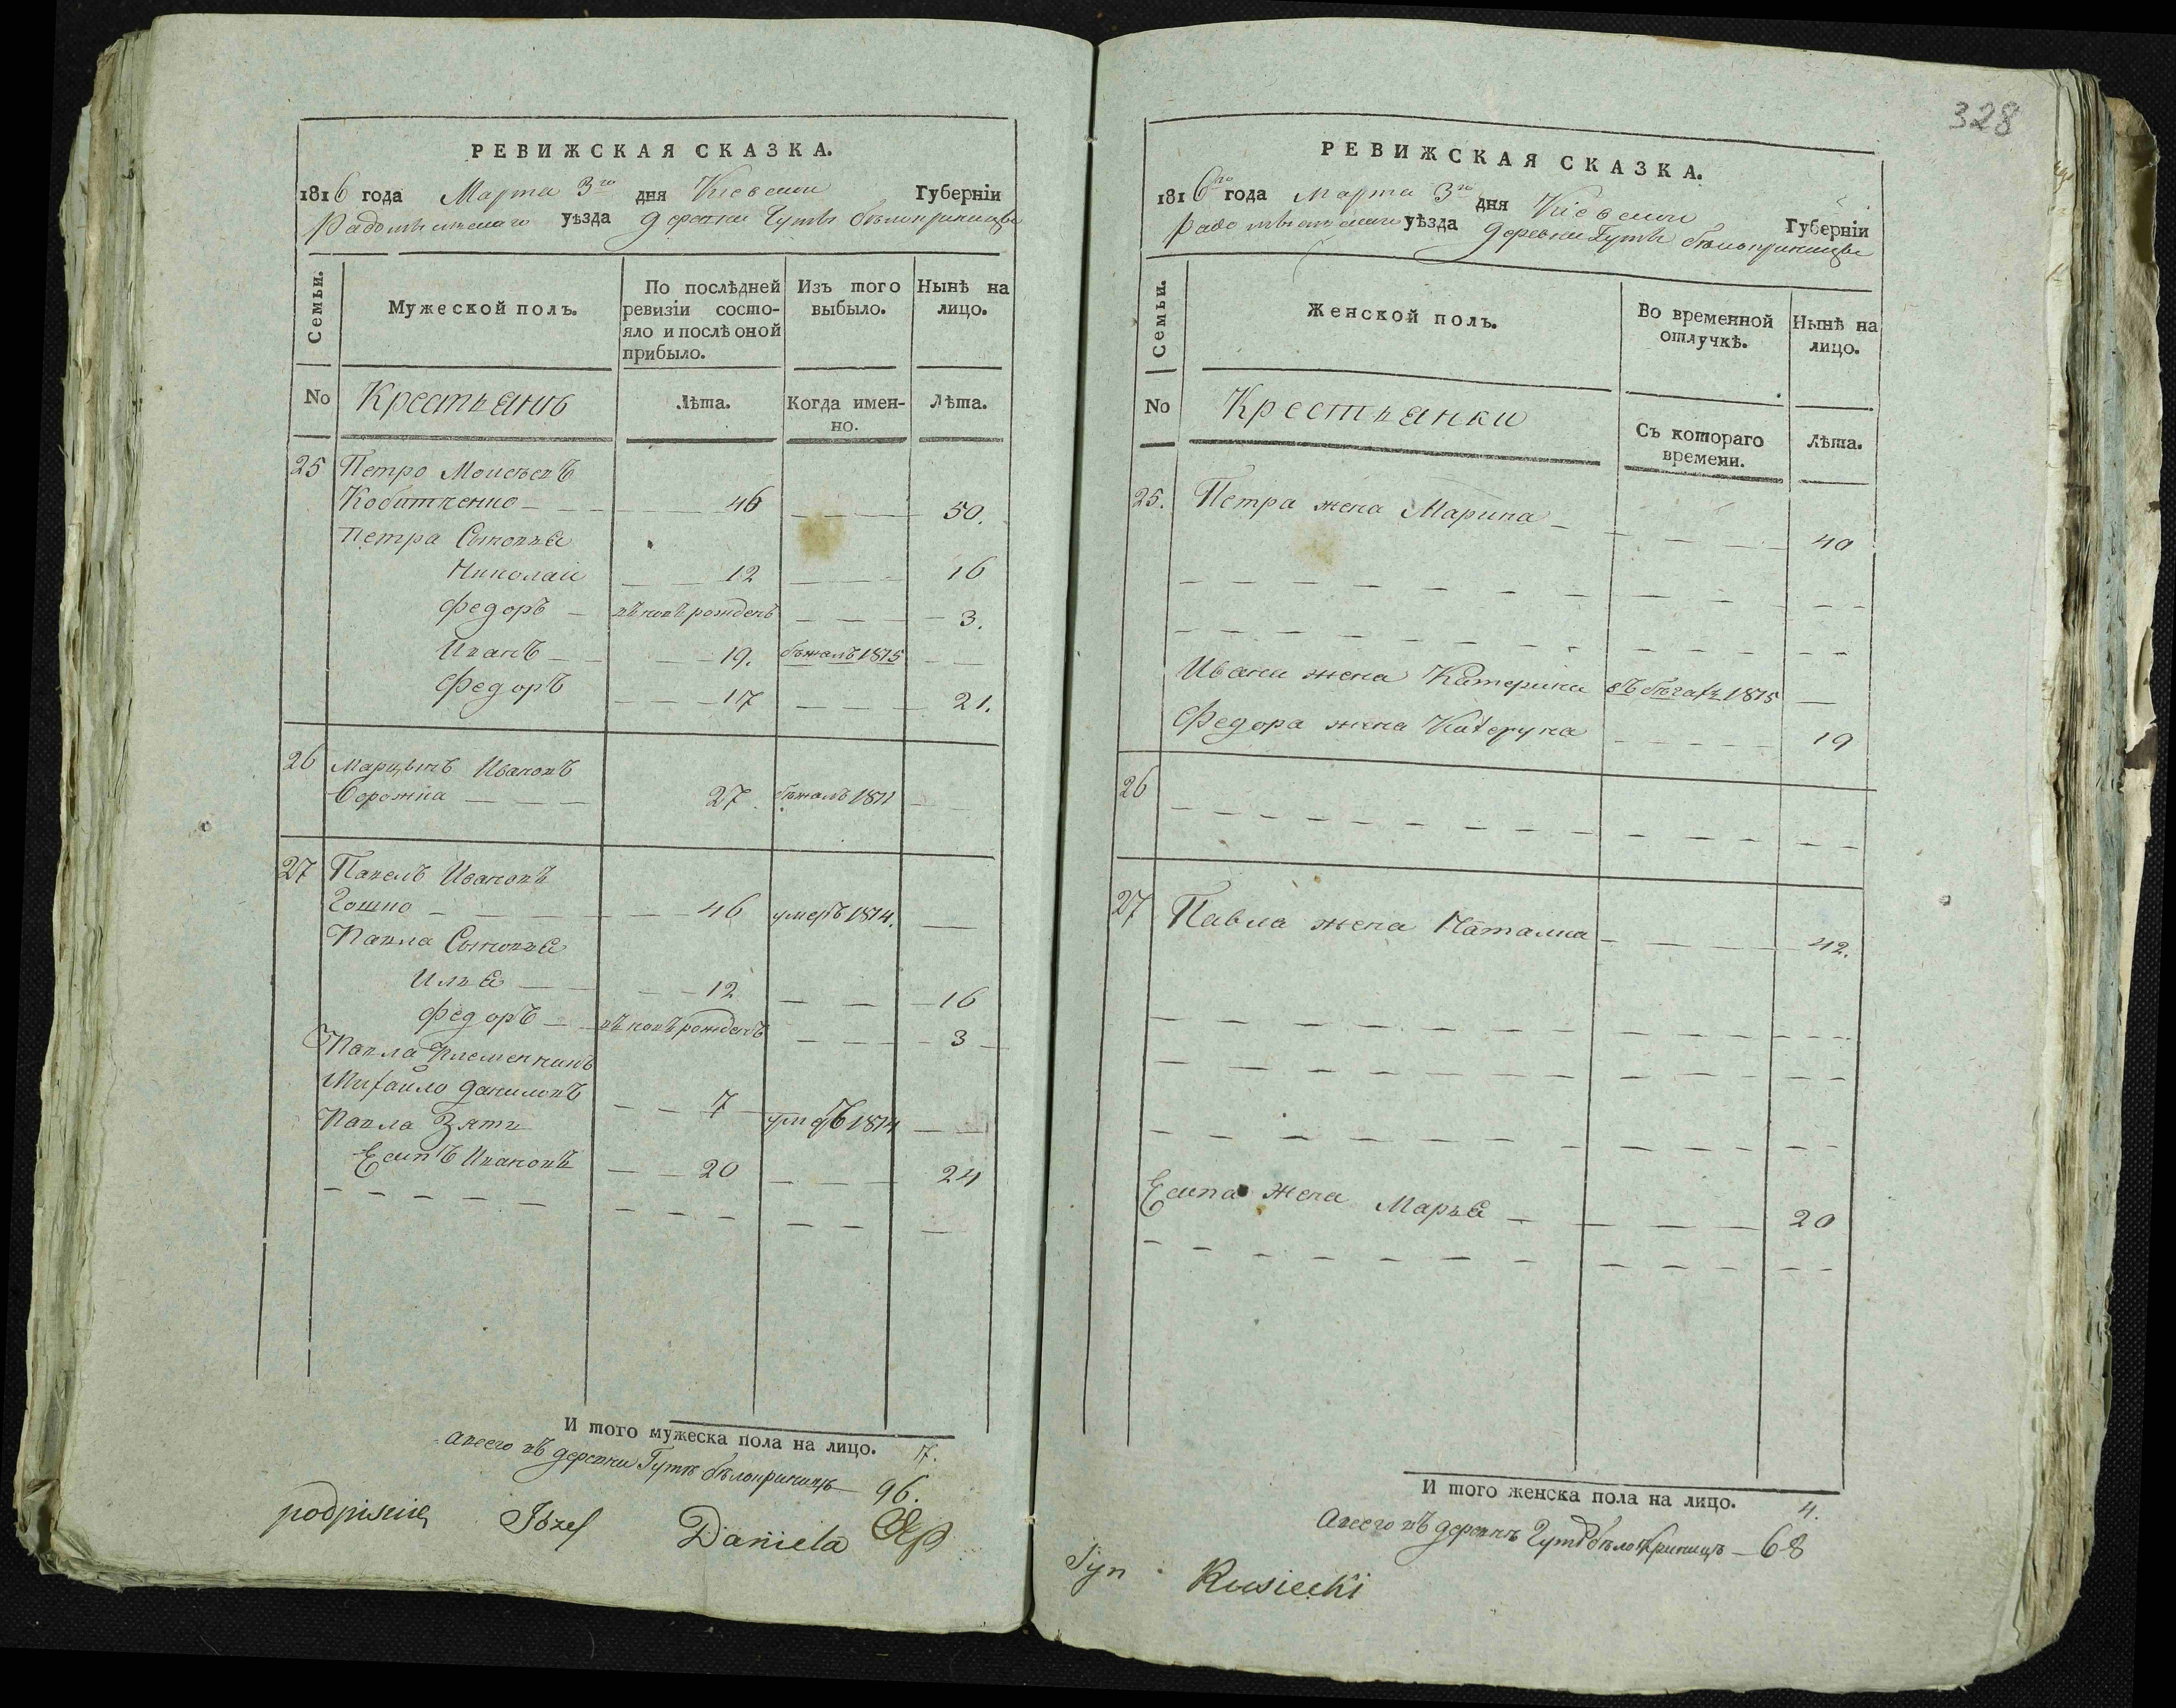 328
РЕВИЖСКАЯ СКАЗКА.
1816 года Марта 3го дня Киевской Губерніи
Радомысльскаго уѣзда деревни Гуты бѣлокриницкы
Семьи.
Мужеской полъ.
По послѣдней ревизіи состо-
яло и послѣ оной
прибыло.
Изъ того
выбыло.
Нынѣ на
лицо.
No
Крестьянъ
Лѣта.
Когда имен-
но.
Лѣта.
25 Петро Моисѣевъ
46 50.
Петра Сыновья
Николай 12 16
Федоръ вновѣ рожденъ 3.
Иванъ 19. бѣжалъ 1815
Федоръ 17 21.
26 Марцынъ Ивановъ
27 бѣжалъ 1811
27 Павелъ Ивановъ
46 умеръ 1814.
Павла Сыновья
Илья 12 16
Федоръ вновѣ рожденъ 3
Павла Племенникъ
Михайло Даниловъ 7 умеръ 1814
Павла Зять
Есипъ Ивановъ 20 24
И того мужеска пола на лицо. 7.
Авсего въ деревни Гутѣ бѣлокриницѣ 96.
podpisuię Józef Daniela
РЕВИЖСКАЯ СКАЗКА.
1816го года марта 3го дня Киевской Губерніи
Радомысльскаго уѣзда деревни Гуты бѣлокриницкы
Семьи.
Женской полъ.
Во временной
отлучкѣ.
Нынѣ на
лицо.
No
Крестьянки
Съ котораго
времени.
Лѣта.
25. Петра жена Марина 40
Ивана жена Катерина въ бѣгахъ 1815
Федора жена Катерина 19
26
27 Павла жена Наталия 42.
Есипа жена Марья 20
И того женска пола на лицо. 4.
Авсего въ деревнѣ Гутѣ бѣлокриницѣ 68
Syn Rusiecki